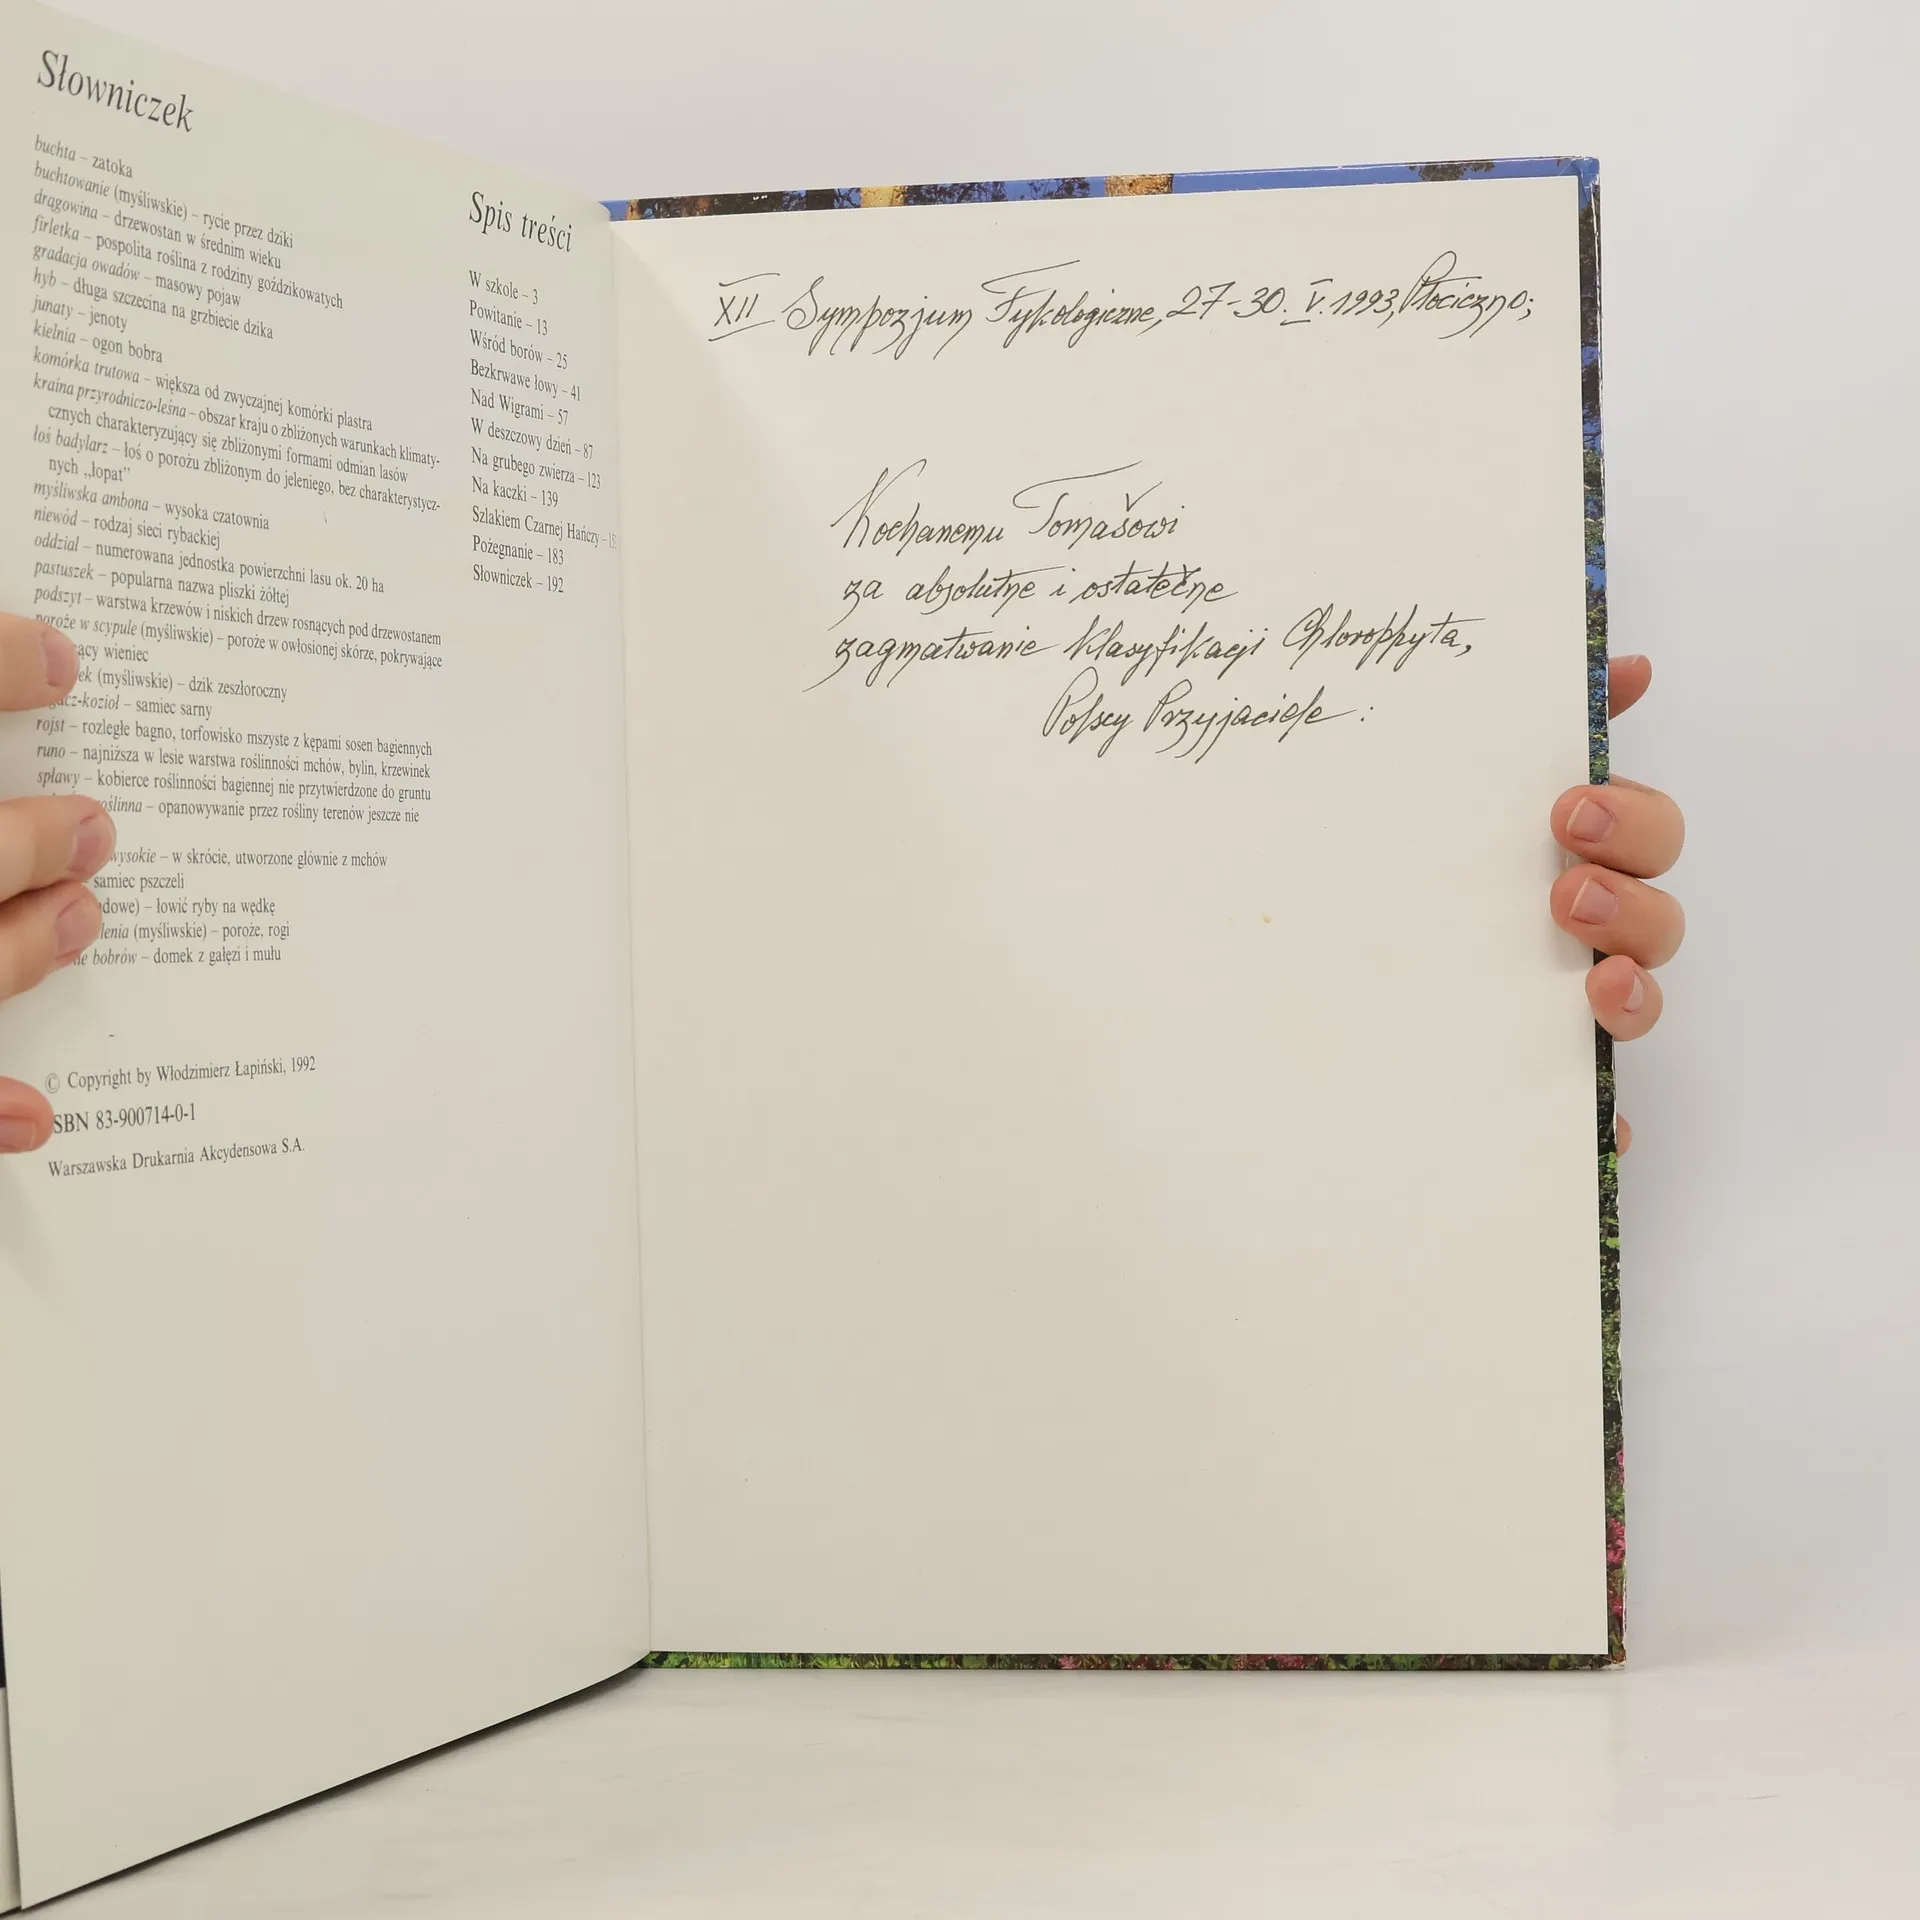 Słowniczek
buchta – zatoka
buchtowanie (myśliwskie) – rycie przez dziki
drągowina – drzewostan w średnim wieku
firletka – pospolita roślina z rodziny goździkowatych
gradacja owadów – masowy pojaw
hyb – długa szczecina na grzbiecie dzika
junaty – jenoty
kielnia – ogon bobra
komórka trutowa – większa od zwyczajnej komórki plastra
kraina przyrodniczo-leśna – obszar kraju o zbliżonych warunkach klimaty-
cznych charakteryzujący się zbliżonymi formami odmian lasów
łoś badylarz – łoś o porożu zbliżonym do jeleniego, bez charakterystycz-
nych „łopat”
myśliwska ambona – wysoka czatownia
niewód – rodzaj sieci rybackiej
oddział – numerowana jednostka powierzchni lasu ok. 20 ha
pastuszek – popularna nazwa pliszki żółtej
podszyt – warstwa krzewów i niskich drzew rosnących pod drzewostanem
poroże w scypule (myśliwskie) – poroże w owłosionej skórze, pokrywające
wieniec
(myśliwskie) – dzik zeszłoroczny
– samiec sarny
rojst – rozległe bagno, torfowisko mszyste z kępami sosen bagiennych
runo – najniższa w lesie warstwa roślinności mchów, bylin, krzewinek
spławy – kobierce roślinności bagiennej nie przytwierdzone do gruntu
– opanowywanie przez rośliny terenów jeszcze nie
wysokie – w skrócie, utworzone głównie z mchów
– samiec pszczeli
– łowić ryby na wędkę
(myśliwskie) – poroże, rogi
bobrów – domek z gałęzi i mułu
© Copyright by Włodzimierz Łapiński, 1992
ISBN 83-900714-0-1
Warszawska Drukarnia Akcydensowa S.A.
Spis treści
W szkole – 3
Powitanie – 13
Wśród borów – 25
Bezkrwawe łowy – 41
Nad Wigrami – 57
W deszczowy dzień – 87
Na grubego zwierza – 123
Na kaczki – 139
Szlakiem Czarnej Hańczy –
Pożegnanie – 183
Słowniczek – 192
XII Sympozjum Fykologiczne, 27-30. V. 1993, Płociczno;
Kochanemu Tomašowi
za absolutne i ostatečne
zagmatwanie klasyfikacji Chlorophyta,
Polscy Przyjaciele :